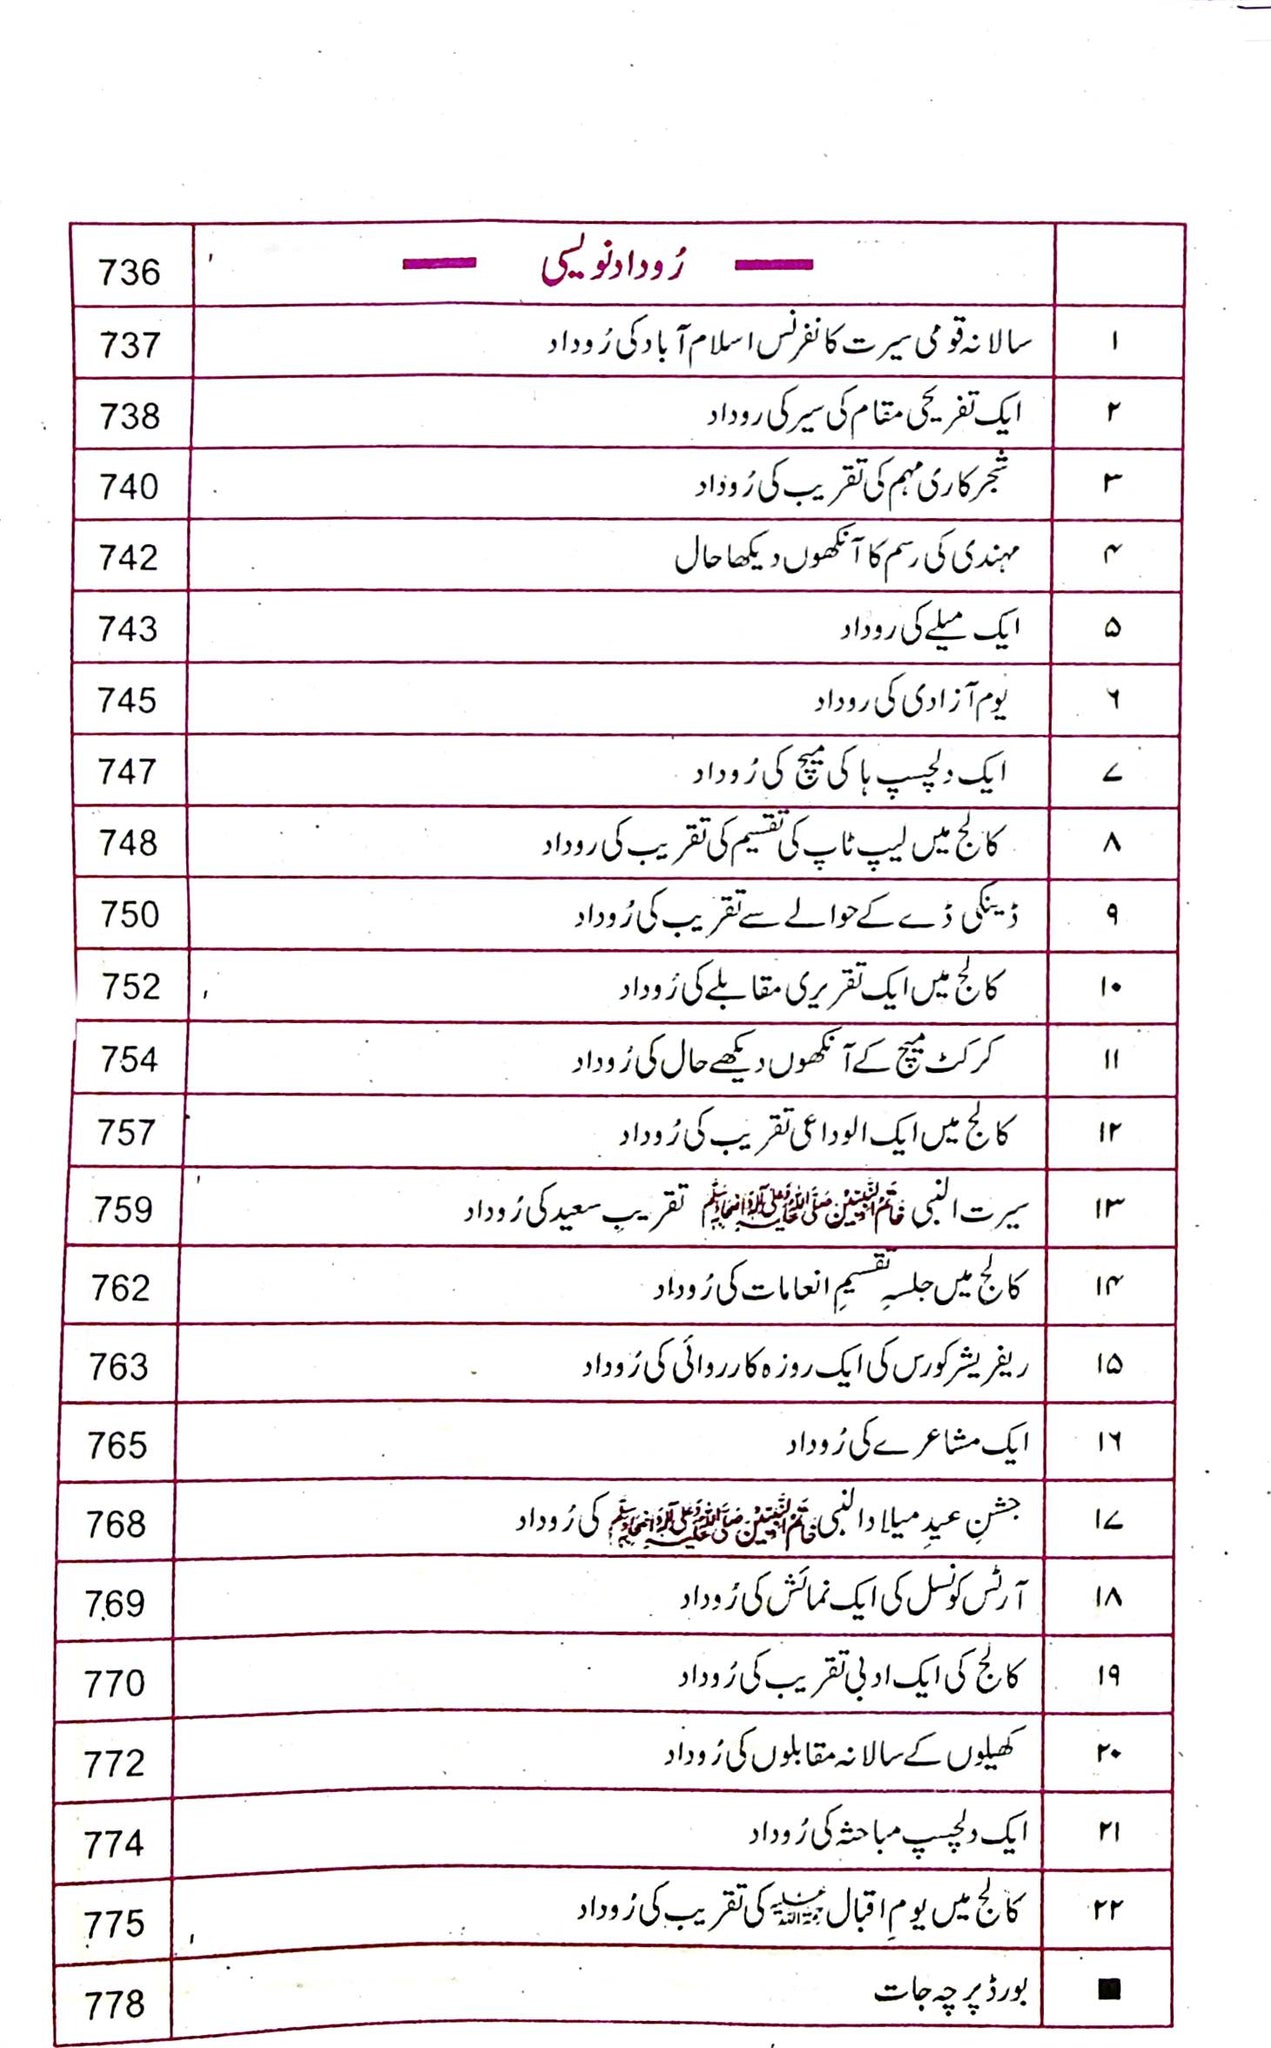 رُوداد نویسی 736
۱ سالانہ قومی سیرت کانفرنس اسلام آباد کی رُوداد 737
۲ ایک تفریحی مقام کی سیر کی روداد 738
۳ شجرکاری مہم کی تقریب کی رُوداد 740
۴ مہندی کی رسم کا آنکھوں دیکھا حال 742
۵ ایک میلے کی روداد 743
۶ یوم آزادی کی روداد 745
۷ ایک دلچسپ ہاکی میچ کی رُوداد 747
۸ کالج میں لیپ ٹاپ کی تقسیم کی تقریب کی روداد 748
۹ ڈینگی ڈے کے حوالے سے تقریب کی رُوداد 750
۱۰ کالج میں ایک تقریری مقابلے کی رُوداد 752
۱۱ کرکٹ میچ کے آنکھوں دیکھے حال کی رُوداد 754
۱۲ کالج میں ایک الوداعی تقریب کی رُوداد 757
۱۳ سیرت النبی خَاتَمُ النَّبِیّٖنَ صَلَّی اللہُ عَلَیْہِ وَعَلٰی آلِہٖ وَاَصْحَابِہٖ وَسَلَّم تقریبِ سعید کی رُوداد 759
۱۴ کالج میں جلسۂ تقسیمِ انعامات کی رُوداد 762
۱۵ ریفریشر کورس کی ایک روزہ کارروائی کی رُوداد 763
۱۶ ایک مشاعرے کی رُوداد 765
۱۷ جشنِ عیدِ میلاد النبی خَاتَمُ النَّبِیّٖنَ صَلَّی اللہُ عَلَیْہِ وَعَلٰی آلِہٖ وَاَصْحَابِہٖ وَسَلَّم کی رُوداد 768
۱۸ آرٹس کونسل کی ایک نمائش کی رُوداد 769
۱۹ کالج کی ایک ادبی تقریب کی رُوداد 770
۲۰ کھیلوں کے سالانہ مقابلوں کی رُوداد 772
۲۱ ایک دلچسپ مباحثہ کی رُوداد 774
۲۲ کالج میں یومِ اقبال رحمۃ اللہ علیہ کی تقریب کی رُوداد 775
■ بورڈ پرچہ جات 778